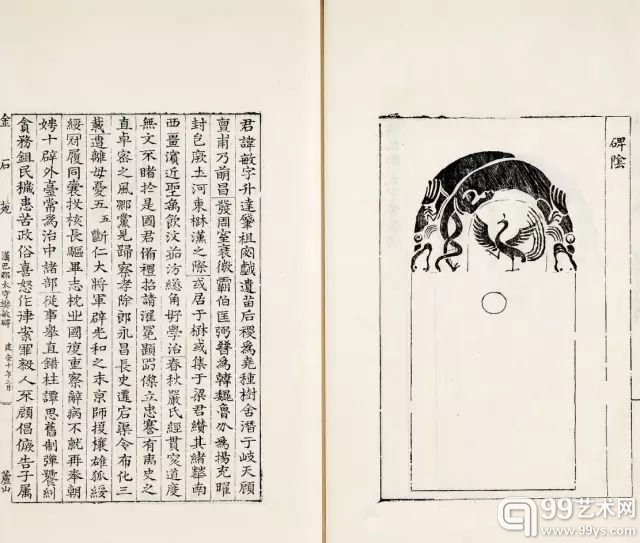 碑陰
君諱敏字升達肇祖宓戲遺苗后稷爲堯種樹舍潛于岐天顧
亶甫乃萌昌發周室衰微霸伯匡弼晉爲韓魏魯分爲揚充曜
封邑厥土河東楙漢之際或居于楙或集于梁君纘其緒華南
西畺濱近聖禹飲汶茹汸緫角好學治春秋嚴氏經貫究道度
無文不睹於是國君備禮招請濯冕傑立忠謇有夷史之
直卓密之風鄉黨見歸察孝除郎永昌長史遷宕渠令布化三
載遭離母憂五五斷仁大將軍辟光和之末京師擾壤雄狐綏
綏冠履同囊投核長驅畢志枕丘國復重察辭病不就再奉朝
娉十辟外臺常爲治中諸部從事舉直錯枉譚思舊制彈饕糾
貪務鉏民穢患苦政俗喜怒作律案罪殺人不顧倡儌告子屬
金石苑 漢巴郡太守樊敏碑 建安十年三月 蘆山
99艺术网
www.99ys.com